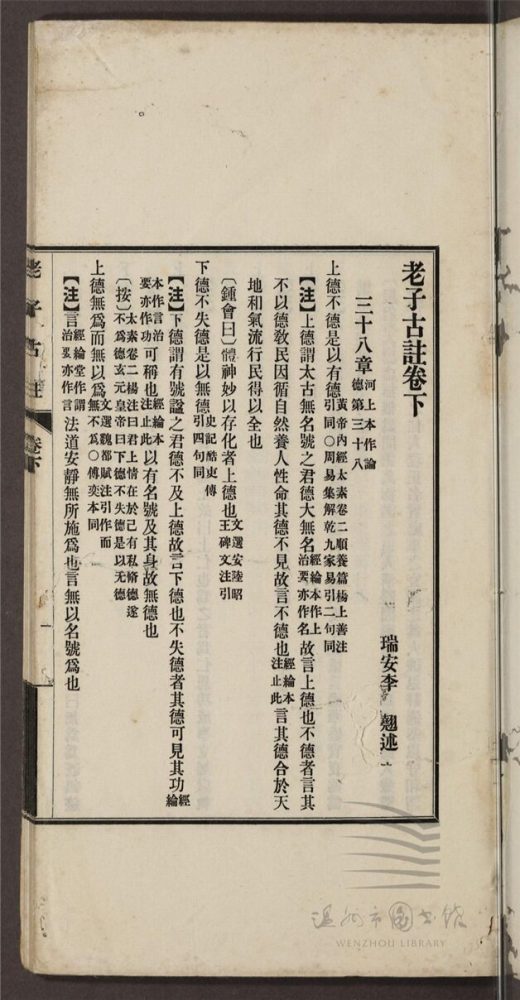 老子古註卷下
瑞安李　翹述
三十八章河上本作論德第三十八
上德不德是以有德黃帝內經太素卷二順養篇楊上善注引同○周易集解乾九家易引二句同
【注】上德謂太古無名號之君德大無名經綸本作上治要亦作名故言上德也不德者言其
不以德敎民因循自然養人性命其德不見故言不德也經綸本注止此言其德合於天
地和氣流行民得以全也
〔鍾會曰〕體神妙以存化者上德也文選安陸昭王碑文注引
下德不失德是以無德史記酷吏傳引四句同
【注】下德謂有號諡之君德不及上德故言下德也不失德者其德可見其功經綸
本作言治要亦作功可稱也經綸本注止此以有名號及其身故無德也
〔按〕太素卷二楊注曰君上情在於己有私脩德遂不爲德玄元皇帝曰下德不失德是以无德
上德無爲而無以爲文選魏都賦注引作而無不爲○傅奕本同
【注】言經綸堂作謂治要亦作言法道安靜無所施爲也言無以名號爲也
老子古註　卷下
溫州市圖書館
WENZHOU LIBRARY